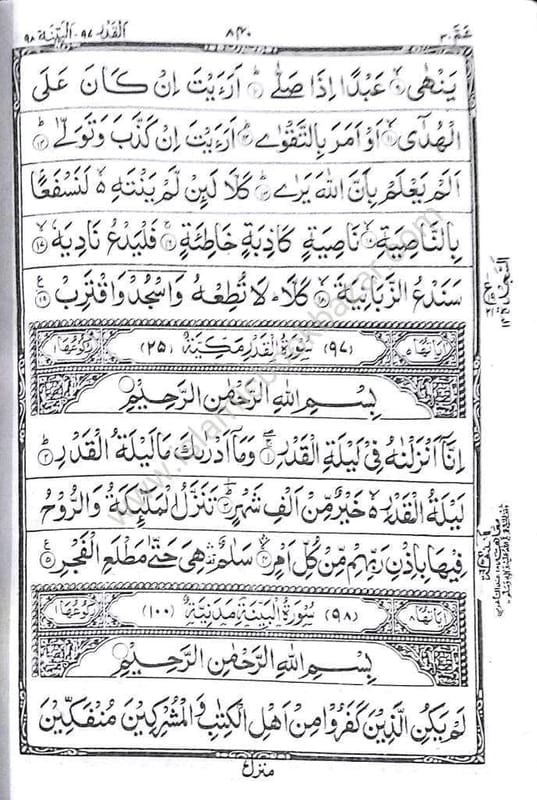 عَمَّ ٣٠
٨٤٠
القدر ٩٧، البينة ٩٨
يَنْهٰى ۙ۹ عَبْدًا اِذَا صَلّٰى ؕ۱۰ اَرَءَيْتَ اِنْ كَانَ عَلَى
الْهُدٰٓى ۙ۱۱ اَوْ اَمَرَ بِالتَّقْوٰى ؕ۱۲ اَرَءَيْتَ اِنْ كَذَّبَ وَتَوَلّٰى ؕ۱۳
اَلَمْ يَعْلَمْ بِاَنَّ اللّٰهَ يَرٰى ؕ۱۴ كَلَّا لَئِنْ لَّمْ يَنْتَهِ ۙ۬ لَنَسْفَعًا
بِالنَّاصِيَةِ ۙ۱۵ نَاصِيَةٍ كَاذِبَةٍ خَاطِئَةٍ ۚ۱۶ فَلْيَدْعُ نَادِيَهٗ ۙ۱۷
سَنَدْعُ الزَّبَانِيَةَ ۙ۱۸ كَلَّا ؕ لَا تُطِعْهُ وَاسْجُدْ وَاقْتَرِبْ ۱۹
السجدة ١٤
اٰيَاتُهَا ٥
(٩٧) سُوْرَةُ الْقَدْرِ مَكِّيَّةٌ (٢٥)
رُكُوْعُهَا ١
بِسْمِ اللّٰهِ الرَّحْمٰنِ الرَّحِيْمِ
اِنَّاۤ اَنْزَلْنٰهُ فِيْ لَيْلَةِ الْقَدْرِ ۖۚ۱ وَمَاۤ اَدْرٰىكَ مَا لَيْلَةُ الْقَدْرِ ؕ۲
لَيْلَةُ الْقَدْرِ ۙ۬ خَيْرٌ مِّنْ اَلْفِ شَهْرٍ ؕ۳ تَنَزَّلُ الْمَلٰٓئِكَةُ وَالرُّوْحُ
فِيْهَا بِاِذْنِ رَبِّهِمْ مِّنْ كُلِّ اَمْرٍ ۙ۴ سَلٰمٌ ۛ هِيَ حَتّٰى مَطْلَعِ الْفَجْرِ ۵
اٰيَاتُهَا ٨
(٩٨) سُوْرَةُ الْبَيِّنَةِ مَدَنِيَّةٌ (١٠٠)
رُكُوْعُهَا ١
بِسْمِ اللّٰهِ الرَّحْمٰنِ الرَّحِيْمِ
لَمْ يَكُنِ الَّذِيْنَ كَفَرُوْا مِنْ اَهْلِ الْكِتٰبِ وَالْمُشْرِكِيْنَ مُنْفَكِّيْنَ
منزل ٧